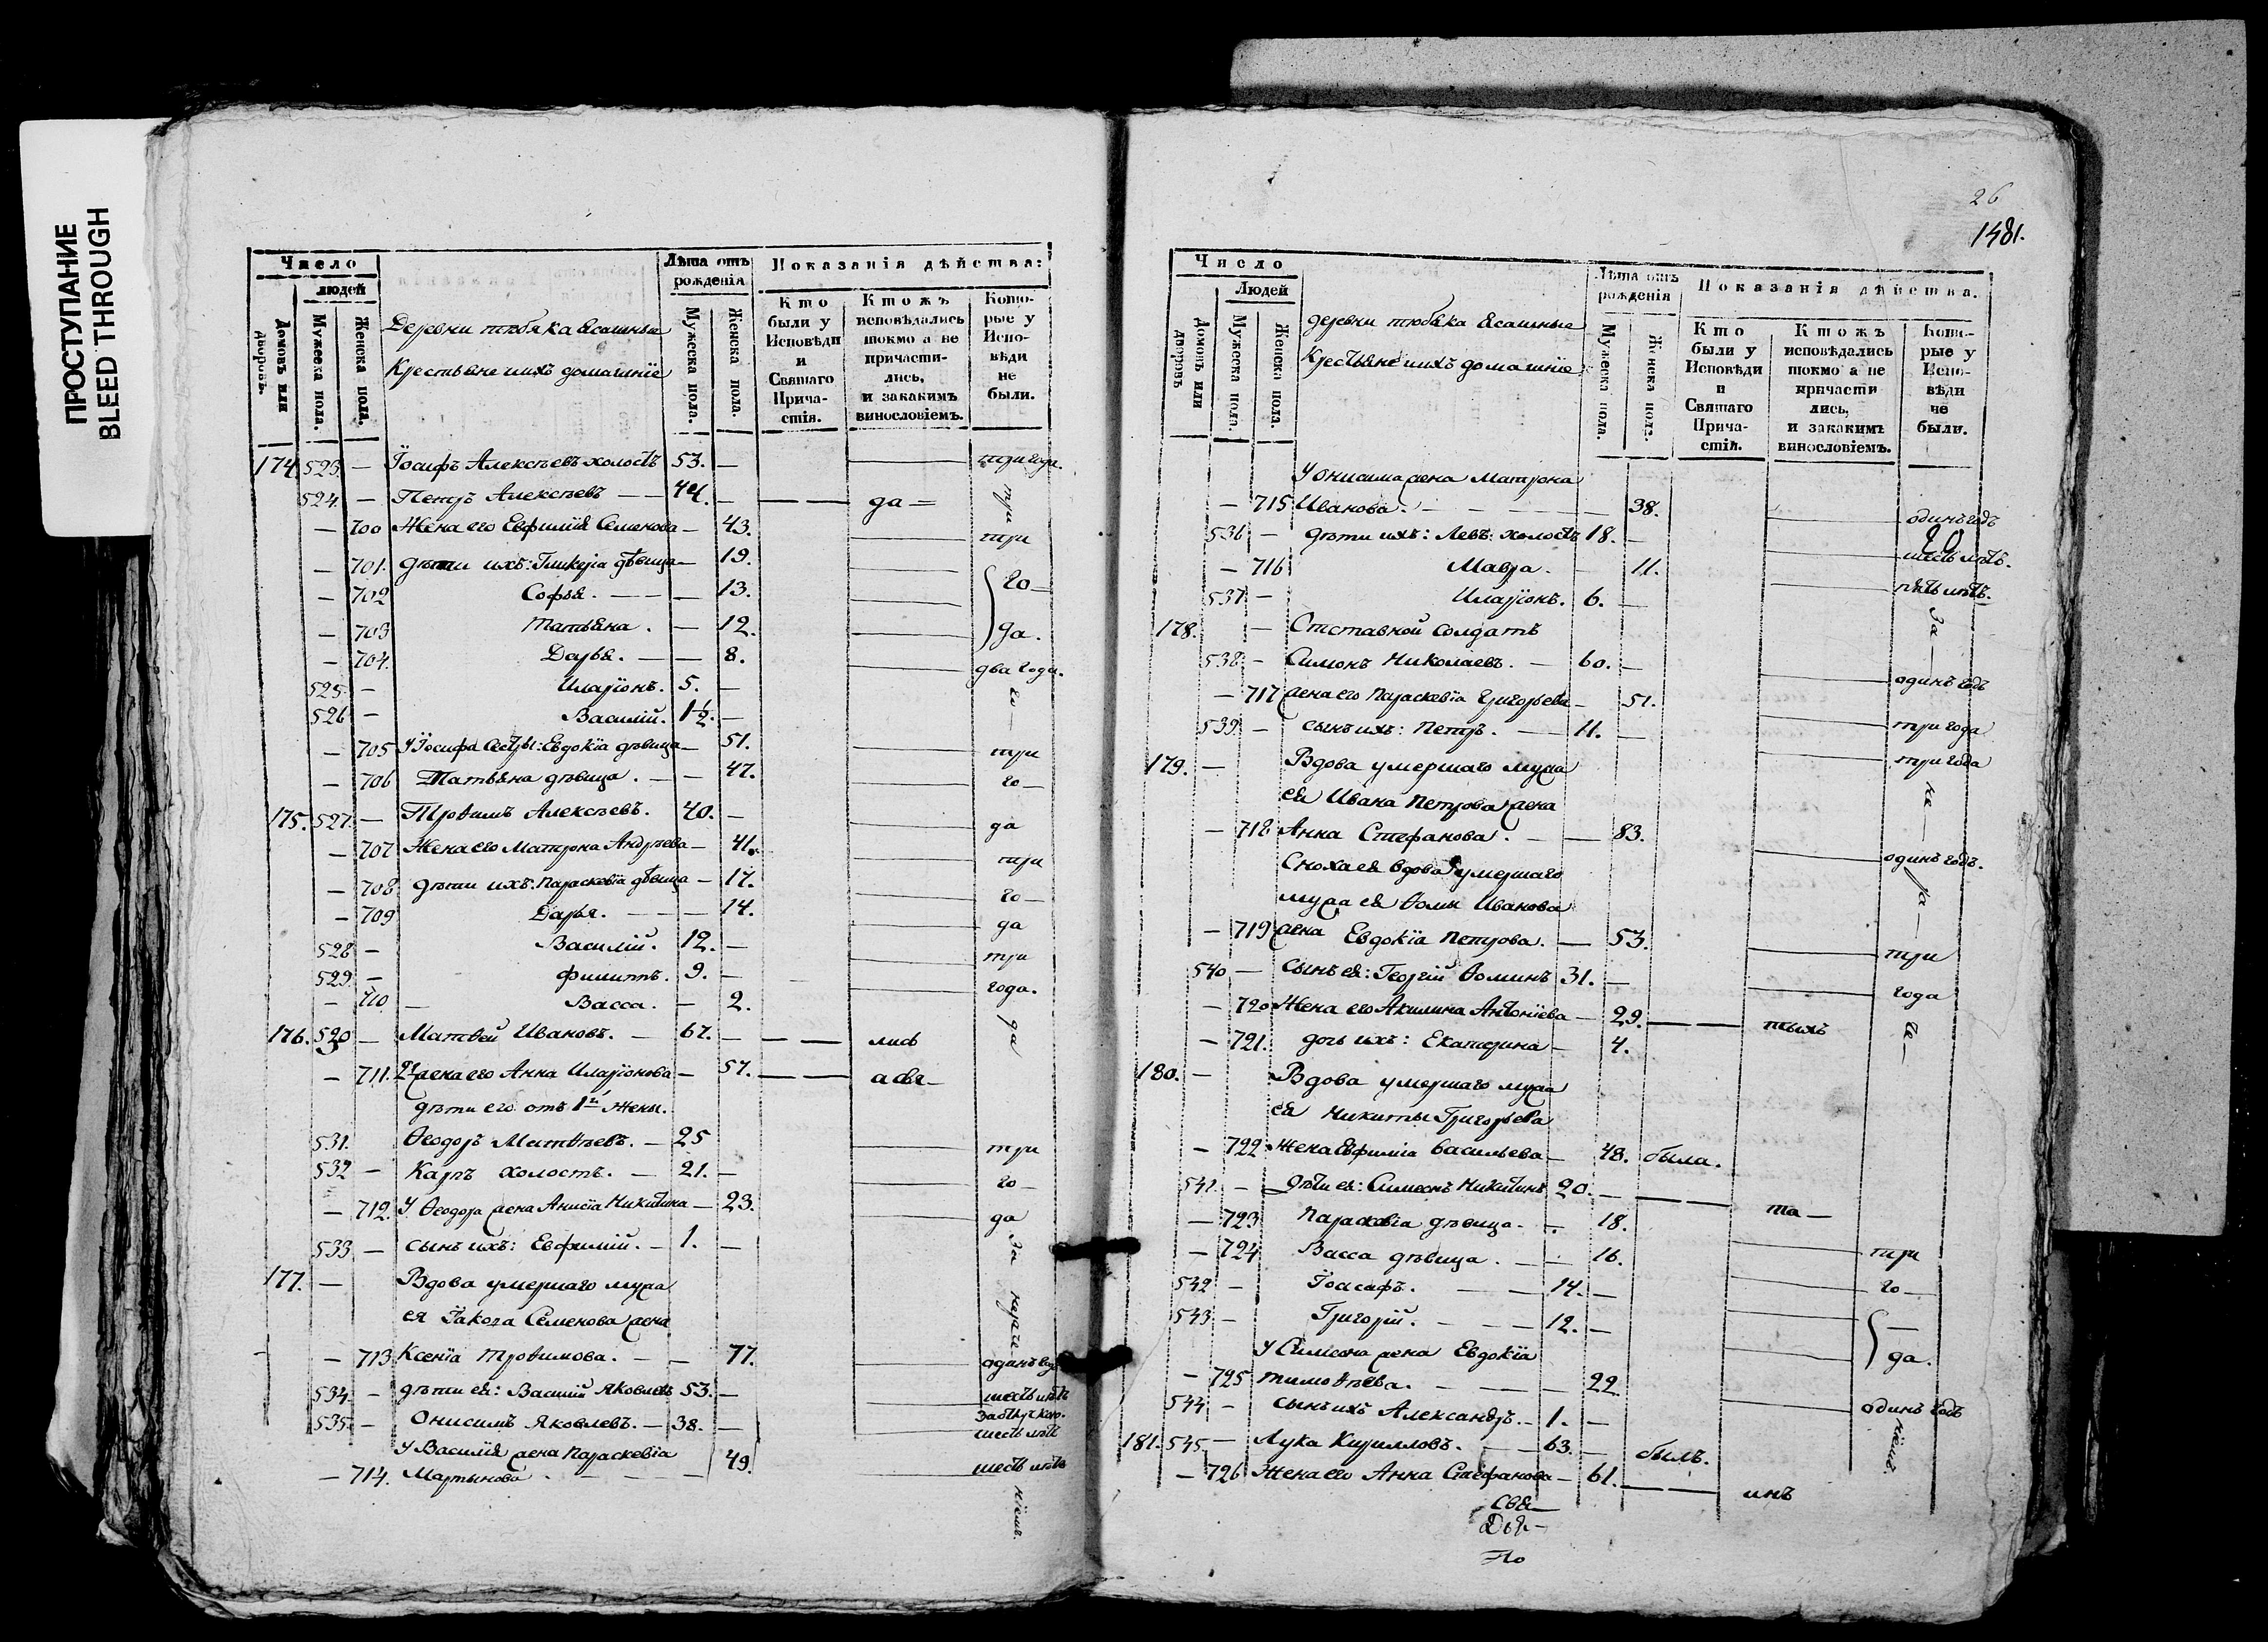 ПРОСТУПАНИЕ
BLEED THROUGH
Число
людей
Домовъ или дворовъ.
Мужеска пола.
Женска пола.
Деревни тюбяка Ясашные
Крестьяне ихъ домашніе
Лѣта отъ рожденія
Мужеска пола.
Женска пола.
Показанія дѣйства:
Кто были у Исповѣди и Святаго Причастія.
Ктожъ исповѣдались токмо а не причастились, и закакимъ винословіемъ.
Которые у Исповѣди не были.
174 523. — Іосифъ Алексѣевъ холостъ 53. — три года.
524. — Петръ Алексѣевъ — 44. — да —
— 700 Жена его Евфимія Семенова — 43. три
— 701. дѣти ихъ: Гликерія дѣвица — 19.
— 702 Софья. — — 13. го —
— 703 Татьяна. — 12. да.
— 704. Дарья. — — 8. два года.
525. — Иларіонъ. 5. —
526 — Василій. 1½. —
— 705 У Іосифа сестры: Евдокія дѣвица — 51. три
— 706 Татьяна дѣвица. — — 47. го —
175. 527. — Трофимъ Алексѣевъ. 40. — да
— 707 Жена его Матрона Андреева — 41. три
— 708. дѣти ихъ: Параскевія дѣвица — 17. го —
— 709 Дарья. — — — 14. да
528 — Василій. 12. — три
529. — Филиппъ. 9. — года.
— 710 — Васса. — 2.
176. 530 — Матвей Ивановъ. — 67. — лись
— 711. 2я жена его Анна Иларіонова — 57. а свя —
дѣти его отъ 1й Жены.
531. Ѳеодоръ Матвѣевъ. — 25 три
532 — Карпъ холостъ. — 21. — го —
— 712. У Ѳеодора жена Анисія Никитина — 23. да
533 — сынъ ихъ: Евфимій. — 1. — за
177. — Вдова умершаго мужа
ея Іакова Семенова жена
— 713 Ксенія Трофимова. — — 77. одинъ годъ
534. — дѣти ея: Василій Яковлевъ 53. — шесть лѣтъ
535. — Онисимъ Яковлевъ. — 38. — шесть лѣтъ
У Василія жена Параскевія
— 714. Мартынова. — — — 49. шесть лѣтъ
ніемъ.
26
1481.
Число
Людей
Домовъ или дворовъ
Мужеска пола.
Женска пола.
деревни тюбяка Ясашные
Крестьяне ихъ домашніе
Лѣта отъ рожденія
Мужеска пола.
Женска пола.
Показанія дѣйства.
Кто были у Исповѣди и Святаго Причастія.
Ктожъ исповѣдались токмо а не причастились, и закакимъ винословіемъ.
Которые у Исповѣди не были.
У Онисима жена Матрона
— 715 Иванова. — — — — 38. одинъ годъ
536 — дѣти ихъ: Левъ: холостъ 18. — шесть лѣтъ.
— 716 Мавра. — 11. пять лѣтъ.
537 — Иларіонъ. 6. — за —
178. — Отставной солдатъ
538 — Симонъ Николаевъ. — 60. — одинъ годъ
— 717 жена его Параскевія Григорьева — 51. три года
539. — сынъ ихъ: Петръ. — 11. — три года
179. — Вдова умершаго мужа
ея Ивана Петрова жена
— 718 Анна Стефанова. — — 83. одинъ годъ.
Сноха ея вдова умершаго
мужа ея Ѳомы Иванова
— 719 жена Евдокія Петрова. — 53. три
540 — сынъ ея: Георгій Ѳоминъ 31. — года
— 720 Жена его Акилина Антоніева — 29. — — тыхъ
— 721. дочь ихъ: Екатерина — 4.
180. — Вдова умершаго мужа
ея Никиты Григорьева
— 722 Жена Евфимія Васильева — 48. была.
541. — дѣти ея: Симеонъ Никитинъ 20. — — — та —
— 723 Параскевія дѣвица. — 18.
— 724 Васса дѣвица. — — 16. три
542 — Іоасафъ. — — 14. — го —
543 — Григорій. — — — 12. —
У Симеона жена Евдокія да.
— 725 Тимофѣева. — — — 22.
544 — сынъ ихъ Александръ. — 1. — одинъ годъ
181. 545. — Лука Кирилловъ. — — 63. — былъ. ніемъ.
— 726 Жена его Анна Стефанова — 61. — — инъ
Свя —
Дья —
По